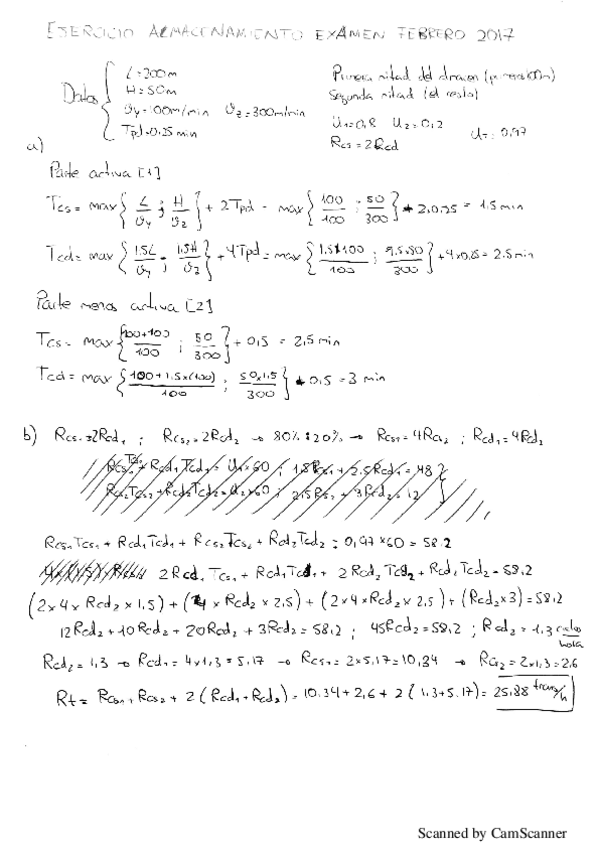 EJERCICIO ALMACENAMIENTO EXAMEN FEBRERO 2017
Datos { L=200m
H=50m
vy=100m/min vz=300m/min
Tpd=0.25 min
Primera mitad del almacen
Segunda mitad (el resto)
U1=0,8 U2=0,2 U=0,97
Rcs=2Rcd
a)
Parte activa [1]
Tcs= max { L/vy ; H/vz } + 2Tpd = max { 100/100 ; 50/300 } + 2·0.25 = 1.5 min
Tcd= max { 1.5L/vy ; 1.5H/vz } + 4Tpd = max { 1.5x100/100 ; 1.5·50/300 } + 4x0.25 = 2.5 min
Parte menos activa [2]
Tcs= max { 100+100/100 ; 50/300 } + 0,5 = 2,5 min
Tcd= max { 100+1.5x(100)/100 ; 50x1.5/300 } + 0.5 = 3 min
b) Rcs1=2Rcd1 ; Rcs2=2Rcd2 → 80% : 20% → Rcs1=4Rcs2 ; Rcd1=4Rcd2
Rcs1Tcs1 + Rcd1Tcd1 + Rcs2Tcs2 + Rcd2Tcd2 = 0,97x60 = 58.2
2Rcd1Tcs1 + Rcd1Tcd1 + 2Rcd2Tcd2 + Rcd2Tcd2 = 58,2
(2x4xRcd2x1,5) + (4xRcd2x2,5) + (2x4xRcd2x2,5) + (Rcd2x3) = 58,2
12Rcd2 + 10Rcd2 + 20Rcd2 + 3Rcd2 = 58,2 ; 45Rcd2 = 58,2 ; Rcd2 = 1,3 ciclos/hora
Rcd2 = 1,3 → Rcd1 = 4x1,3 = 5.17 → Rcs1 = 2x5.17 = 10,34 → Rcs2 = 2x1,3 = 2.6
Rt = Rcs1 + Rcs2 + 2(Rcd1+Rcd2) = 10.34 + 2,6 + 2(1,3+5.17) = 25,88 trans/h
Scanned by CamScanner